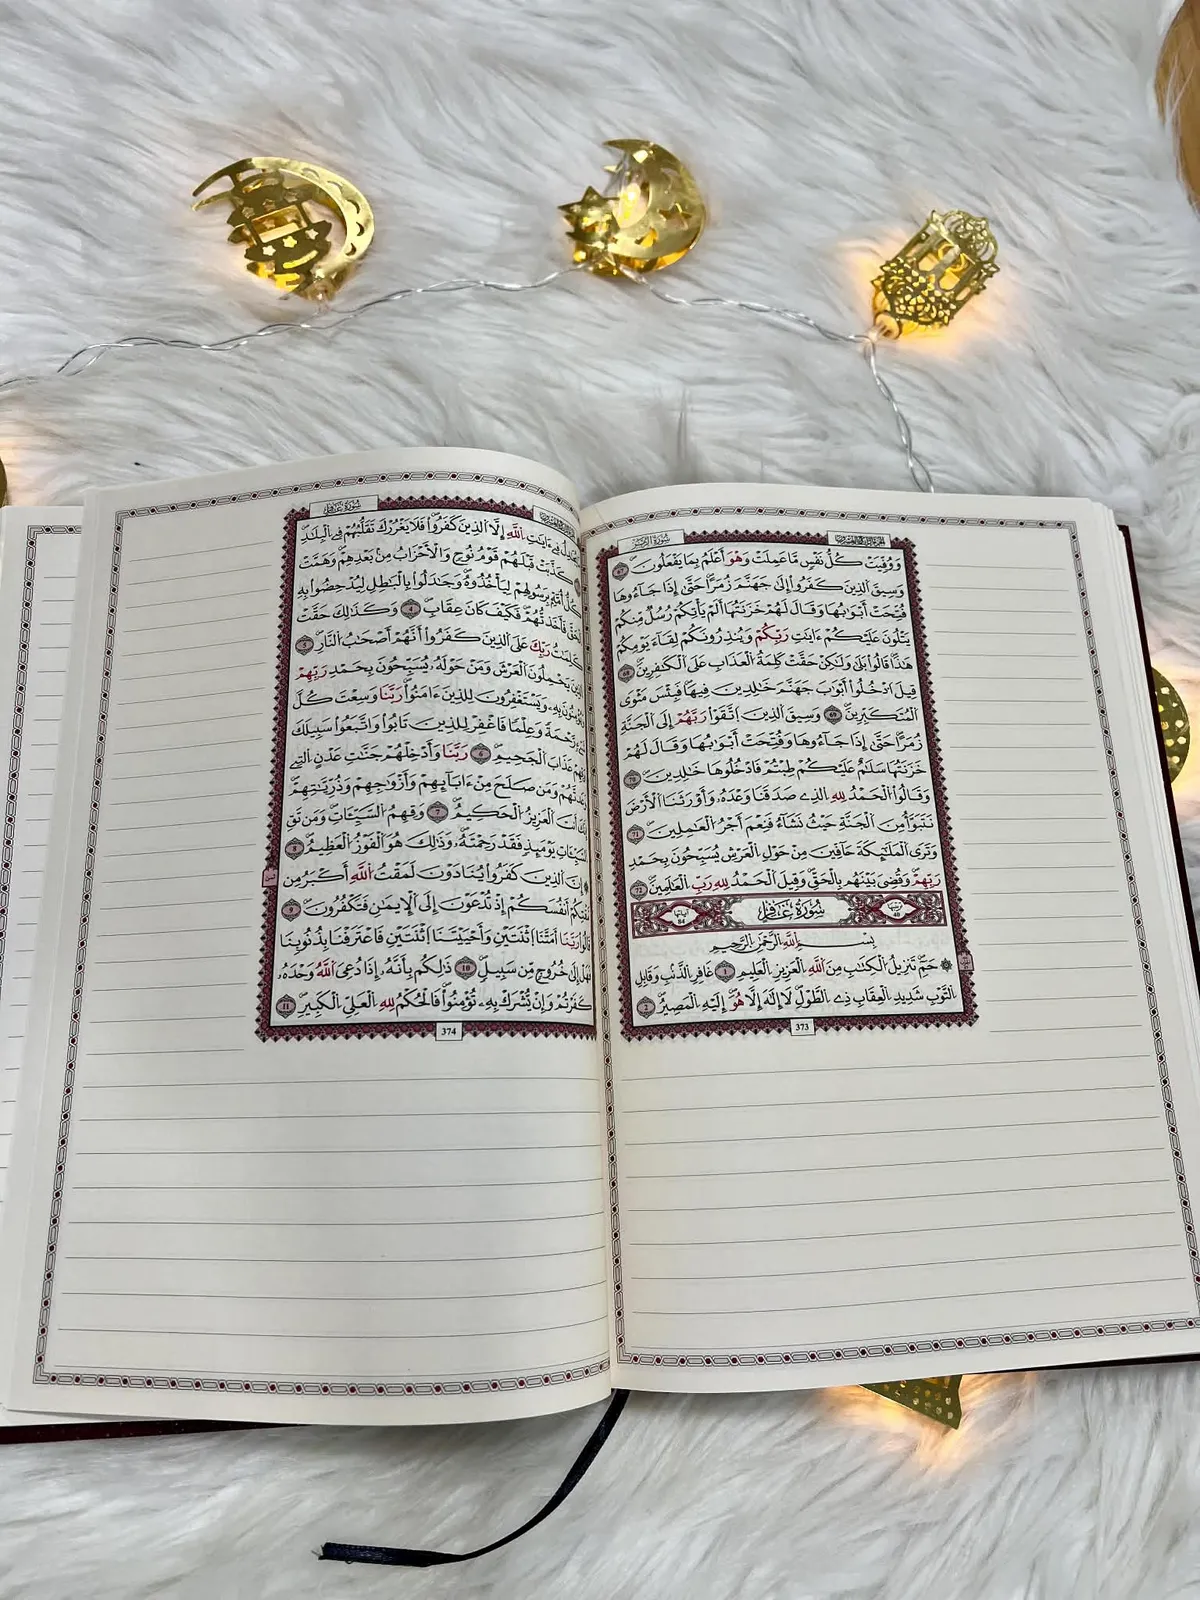 الجزء الرابع والعشرون
سُورَةُ الزُّمَرِ
وَوُفِّيَتْ كُلُّ نَفْسٍ مَّا عَمِلَتْ وَهُوَ أَعْلَمُ بِمَا يَفْعَلُونَ 67
وَسِيقَ الَّذِينَ كَفَرُوا إِلَىٰ جَهَنَّمَ زُمَرًا حَتَّىٰ إِذَا جَاءُوهَا
فُتِّحَتْ أَبْوَابُهَا وَقَالَ لَهُمْ خَزَنَتُهَا أَلَمْ يَأْتِكُمْ رُسُلٌ مِّنكُمْ
يَتْلُونَ عَلَيْكُمْ ءَايَٰتِ رَبِّكُمْ وَيُنذِرُونَكُمْ لِقَاءَ يَوْمِكُمْ
هَٰذَا قَالُوا بَلَىٰ وَلَٰكِنْ حَقَّتْ كَلِمَةُ الْعَذَابِ عَلَى الْكَٰفِرِينَ 68
قِيلَ ادْخُلُوا أَبْوَابَ جَهَنَّمَ خَٰلِدِينَ فِيهَا فَبِئْسَ مَثْوَى
الْمُتَكَبِّرِينَ 69 وَسِيقَ الَّذِينَ اتَّقَوْا رَبَّهُمْ إِلَى الْجَنَّةِ
زُمَرًا حَتَّىٰ إِذَا جَاءُوهَا وَفُتِّحَتْ أَبْوَابُهَا وَقَالَ لَهُمْ
خَزَنَتُهَا سَلَٰمٌ عَلَيْكُمْ طِبْتُمْ فَادْخُلُوهَا خَٰلِدِينَ 70
وَقَالُوا الْحَمْدُ لِلهِ الَّذِي صَدَقَنَا وَعْدَهُ وَأَوْرَثَنَا الْأَرْضَ
نَتَبَوَّأُ مِنَ الْجَنَّةِ حَيْثُ نَشَاءُ فَنِعْمَ أَجْرُ الْعَٰمِلِينَ 71
وَتَرَى الْمَلَٰئِكَةَ حَافِّينَ مِنْ حَوْلِ الْعَرْشِ يُسَبِّحُونَ بِحَمْدِ
رَبِّهِمْ وَقُضِيَ بَيْنَهُم بِالْحَقِّ وَقِيلَ الْحَمْدُ لِلهِ رَبِّ الْعَٰلَمِينَ 72
ترتيبها 40 سُورَةُ غَافِر آياتها 84
بِسْمِ اللهِ الرَّحْمَٰنِ الرَّحِيمِ
حَمٓ تَنزِيلُ الْكِتَٰبِ مِنَ اللهِ الْعَزِيزِ الْعَلِيمِ 1 غَافِرِ الذَّنبِ وَقَابِلِ
التَّوْبِ شَدِيدِ الْعِقَابِ ذِي الطَّوْلِ لَا إِلَٰهَ إِلَّا هُوَ إِلَيْهِ الْمَصِيرُ 2
373
سُورَةُ غَافِر
فِي ءَايَٰتِ اللهِ إِلَّا الَّذِينَ كَفَرُوا فَلَا يَغْرُرْكَ تَقَلُّبُهُمْ فِي الْبِلَٰدِ
كَذَّبَتْ قَبْلَهُمْ قَوْمُ نُوحٍ وَالْأَحْزَابُ مِنْ بَعْدِهِمْ وَهَمَّتْ
كُلُّ أُمَّةٍ بِرَسُولِهِمْ لِيَأْخُذُوهُ وَجَٰدَلُوا بِالْبَٰطِلِ لِيُدْحِضُوا بِهِ
الْحَقَّ فَأَخَذتُّهُمْ فَكَيْفَ كَانَ عِقَابِ 4 وَكَذَٰلِكَ حَقَّتْ
كَلِمَٰتُ رَبِّكَ عَلَى الَّذِينَ كَفَرُوا أَنَّهُمْ أَصْحَٰبُ النَّارِ 5
الَّذِينَ يَحْمِلُونَ الْعَرْشَ وَمَنْ حَوْلَهُ يُسَبِّحُونَ بِحَمْدِ رَبِّهِمْ
وَيُؤْمِنُونَ بِهِ وَيَسْتَغْفِرُونَ لِلَّذِينَ ءَامَنُوا رَبَّنَا وَسِعْتَ كُلَّ
شَيْءٍ رَّحْمَةً وَعِلْمًا فَاغْفِرْ لِلَّذِينَ تَابُوا وَاتَّبَعُوا سَبِيلَكَ
وَقِهِمْ عَذَابَ الْجَحِيمِ 6 رَبَّنَا وَأَدْخِلْهُمْ جَنَّٰتِ عَدْنٍ الَّتِي
وَعَدتَّهُمْ وَمَن صَلَحَ مِنْ ءَابَائِهِمْ وَأَزْوَٰجِهِمْ وَذُرِّيَّٰتِهِمْ
إِنَّكَ أَنتَ الْعَزِيزُ الْحَكِيمُ 7 وَقِهِمُ السَّيِّئَاتِ وَمَن تَقِ
السَّيِّئَاتِ يَوْمَئِذٍ فَقَدْ رَحِمْتَهُ وَذَٰلِكَ هُوَ الْفَوْزُ الْعَظِيمُ 8
إِنَّ الَّذِينَ كَفَرُوا يُنَادَوْنَ لَمَقْتُ اللهِ أَكْبَرُ مِن
مَّقْتِكُمْ أَنفُسَكُمْ إِذْ تُدْعَوْنَ إِلَى الْإِيمَٰنِ فَتَكْفُرُونَ 9
قَالُوا رَبَّنَا أَمَتَّنَا اثْنَتَيْنِ وَأَحْيَيْتَنَا اثْنَتَيْنِ فَاعْتَرَفْنَا بِذُنُوبِنَا
فَهَلْ إِلَىٰ خُرُوجٍ مِّن سَبِيلٍ 10 ذَٰلِكُم بِأَنَّهُ إِذَا دُعِيَ اللهُ وَحْدَهُ
كَفَرْتُمْ وَإِنْ يُّشْرَكْ بِهِ تُؤْمِنُوا فَالْحُكْمُ لِلهِ الْعَلِيِّ الْكَبِيرِ 11
374